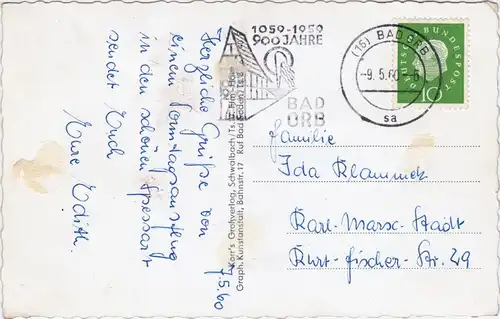 7.5.60
Herzliche Grüße von
einem Sonntagsausflug
in den schönen Spessart
sendet Euch
Eure Edith.
Karr's Großverlag, Schwalbach/Ts. b. Ffm.-Höchst
Graph. Kunstanstalt, Bahnstr. 17 Ruf Bad Soden/Ts.
1059-1959
900 JAHRE
BAD
ORB
(16) BAD ORB
-9.5.60
sa
DEUTSCHE BUNDESPOST
10
Familie
Ida Klammek
Karl-Marx-Stadt
Kurt-Fischer-Str. 29